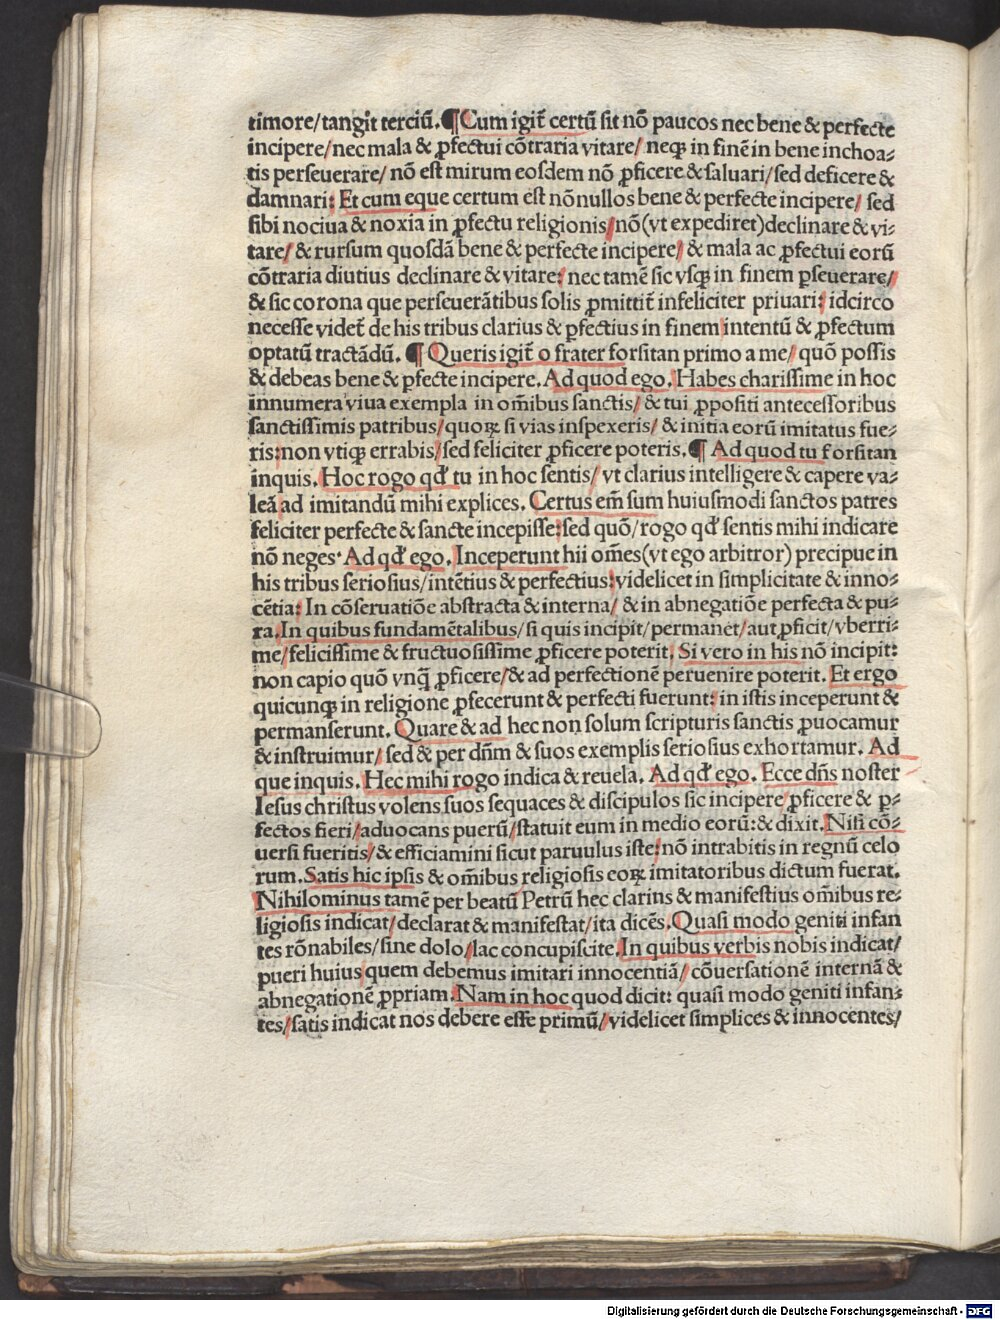 timore/tangit terciū.¶Cum igit̄ certū sit nō paucos nec bene & perfecte
incipere/nec mala & ꝓfectui cōtraria vitare/ neqꝫ in finē in bene inchoa⸗
tis perseuerare/ nō est mirum eosdem nō ꝓficere & saluari/sed deficere &
damnari: Et cum eque certum est nōnullos bene & perfecte incipere/ sed
sibi nociua & noxia in ꝓfectu religionis/nō(vt expediret)declinare & vi⸗
tare/ & rursum quosdā bene & perfecte incipere/ & mala ac ꝓfectui eorū
cōtraria diutius declinare & vitare: nec tamē sic vsqꝫ in finem ꝑseuerare/
& sic corona que perseuerātibus solis ꝓmittit̄ infeliciter priuari: idcirco
necesse videt̄ de his tribus clarius & ꝑfectius in finem intentū & ꝓfectum
optatū tractādū. ¶ Queris igit̄ o frater forsitan primo a me/ quō possis
& debeas bene & ꝑfecte incipere. Ad quod ego. Habes charissime in hoc
innumera viua exempla in om̄ibus sanctis/ & tui ꝓpositi antecessoribus
sanctissimis patribus/quoꝝ si vias inspexeris/ & initia eorū imitatus fue⸗
ris:non vtiqꝫ errabis/sed feliciter ꝓficere poteris.¶ Ad quod tu forsitan
inquis. Hoc rogo qđ tu in hoc sentis/ vt clarius intelligere & capere va⸗
leā ad imitandū mihi explices. Certus em̄ sum huiusmodi sanctos patres
feliciter perfecte & sancte incepisse:sed quō/rogo qđ sentis mihi indicare
nō neges. Ad qđ ego. Inceperunt hii om̄es(vt ego arbitror) precipue in
his tribus seriosius/intētius & perfectius:videlicet in simplicitate & inno⸗
cētia: In cōseruatiōe abstracta & interna/ & in abnegatiōe perfecta & pu⸗
ra.In quibus fundamētalibus/si quis incipit/permanet/aut ꝓficit/vberri⸗
me/felicissime & fructuosissime ꝓficere poterit. Si vero in his nō incipit:
non capio quō vnq̄ ꝓficere/& ad perfectionē peruenire poterit. Et ergo
quicunqꝫ in religione ꝓfecerunt & perfecti fuerunt: in istis inceperunt &
permanserunt. Quare & ad hec non solum scripturis sanctis ꝓuocamur
& instruimur/ sed & per dn̄m & suos exemplis seriosius exhortamur. Ad
que inquis. Hec mihi rogo indica & reuela. Ad qđ ego. Ecce dn̄s noster
Iesus christus volens suos sequaces & discipulos sic incipere/ꝓficere & ꝑ⸗
fectos fieri/aduocans puerū/statuit eum in medio eorū:& dixit.Nisi cō⸗
uersi fueritis/& efficiamini sicut paruulus iste:nō intrabitis in regnū celo
rum.Satis hic ipsis & om̄ibus religiosis eoꝝ imitatoribus dictum fuerat.
Nihilominus tamē per beatū Petrū hec clarius & manifestius om̄ibus re⸗
ligiosis indicat/declarat & manifestat/ita dicēs.Quasi modo geniti infan
tes rōnabiles/sine dolo/lac concupiscite.In quibus verbis nobis indicat/
pueri huius quem debemus imitari innocentiā/ cōuersationē internā &
abnegationē ꝓpriam.Nam in hoc quod dicit: quasi modo geniti infan⸗
tes/satis indicat nos debere esse primū/videlicet simplices & innocentes/
Digitalisierung gefördert durch die Deutsche Forschungsgemeinschaft - DFG